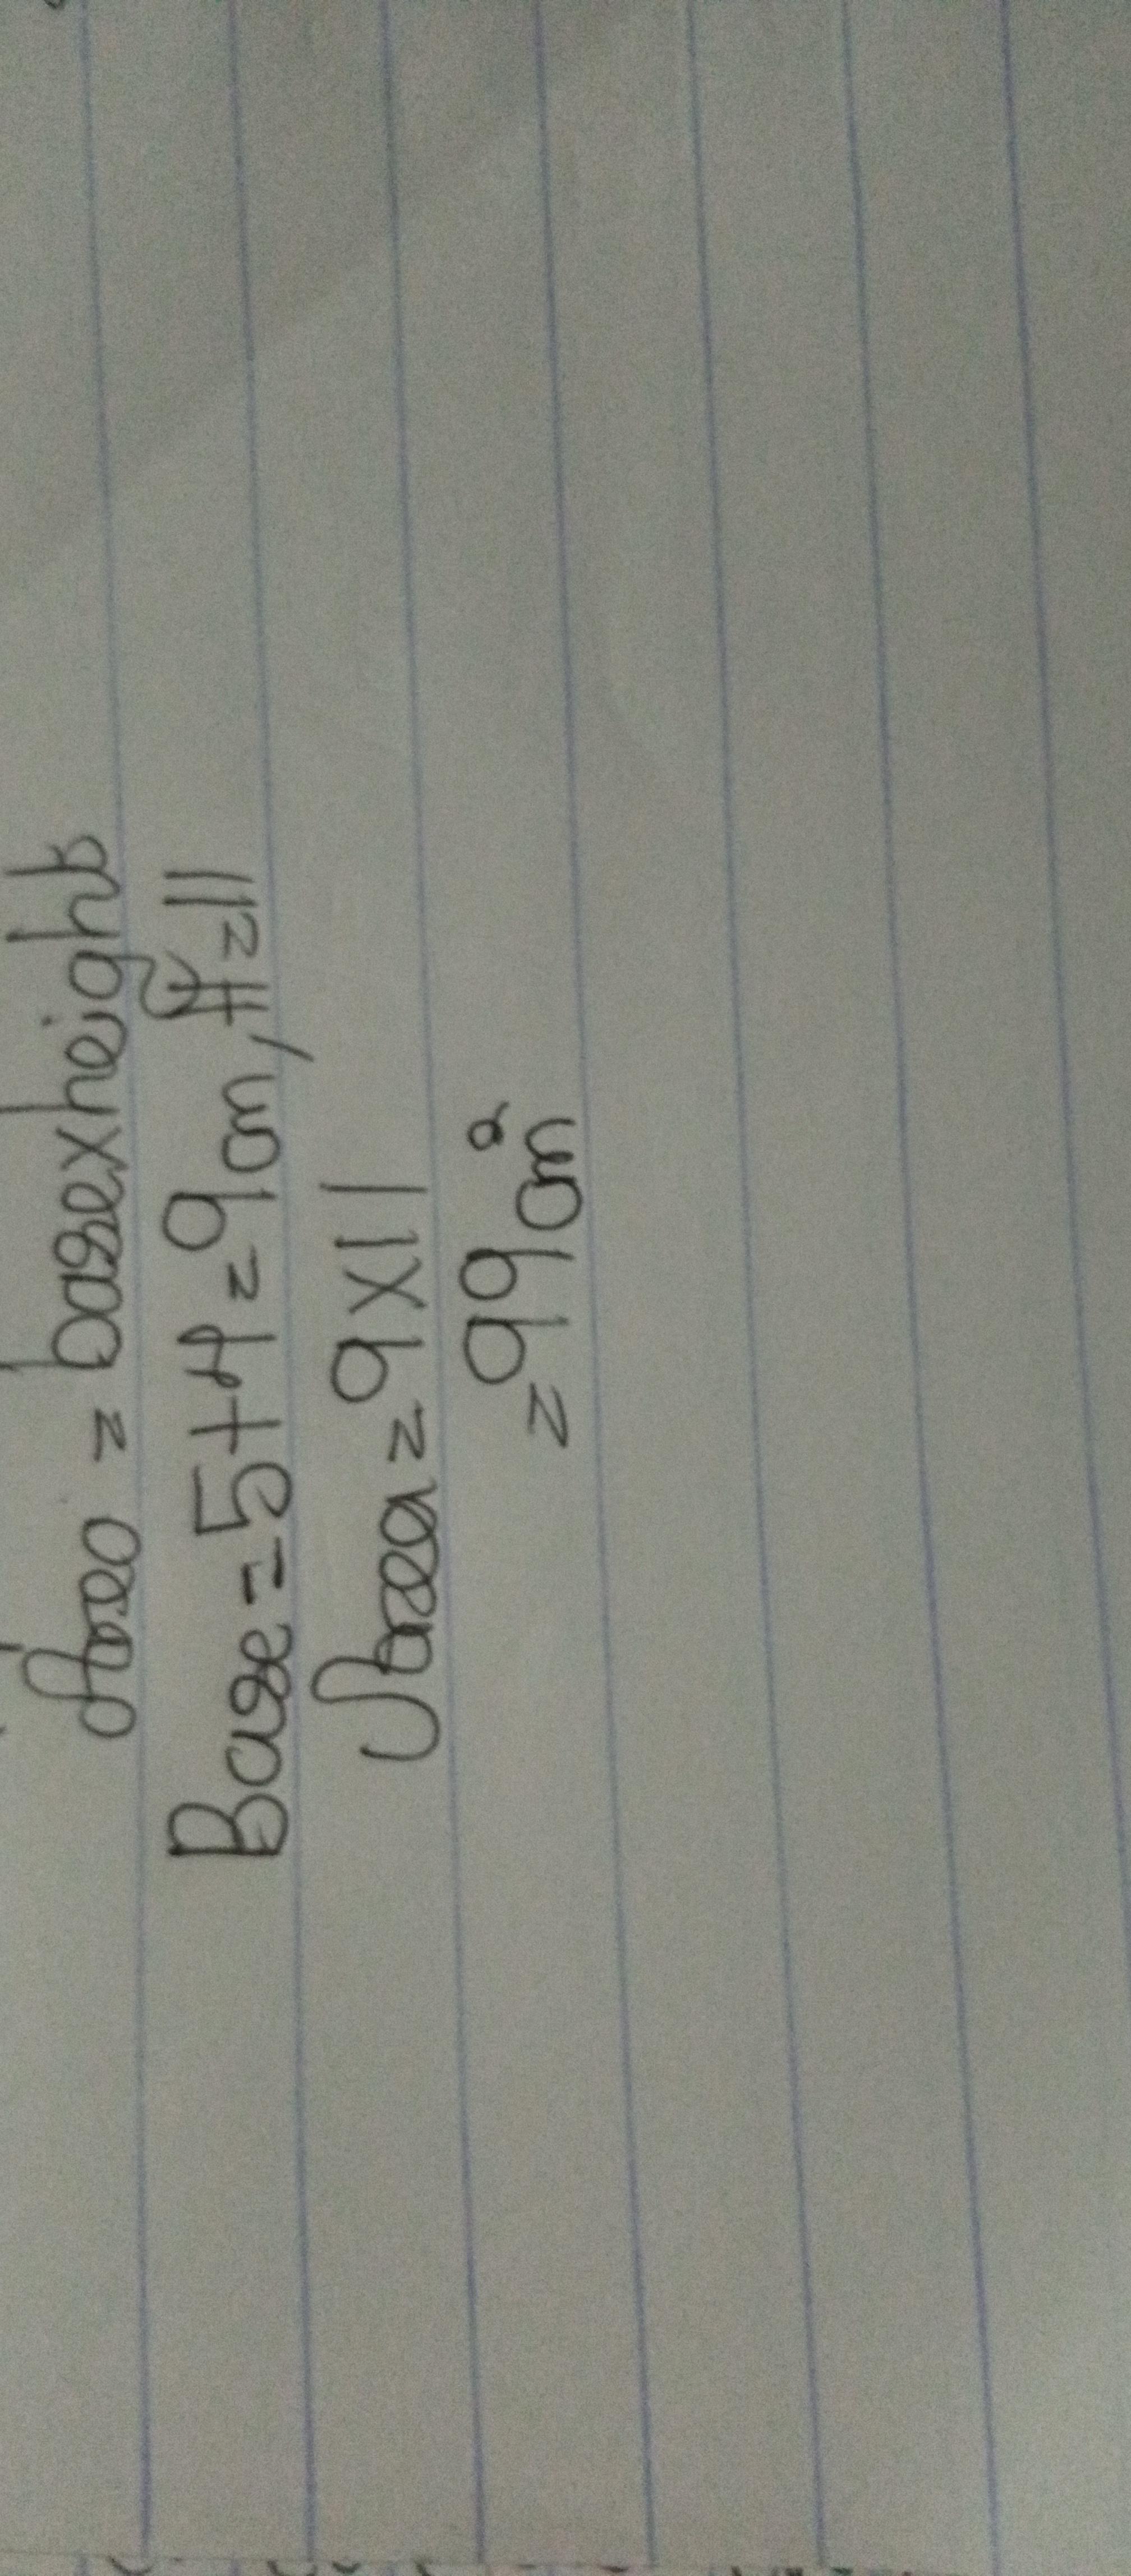 Area = basexheight
Base = 5+4 = 9 cm, H = 11
Area = 9 x 11
= 99 cm²